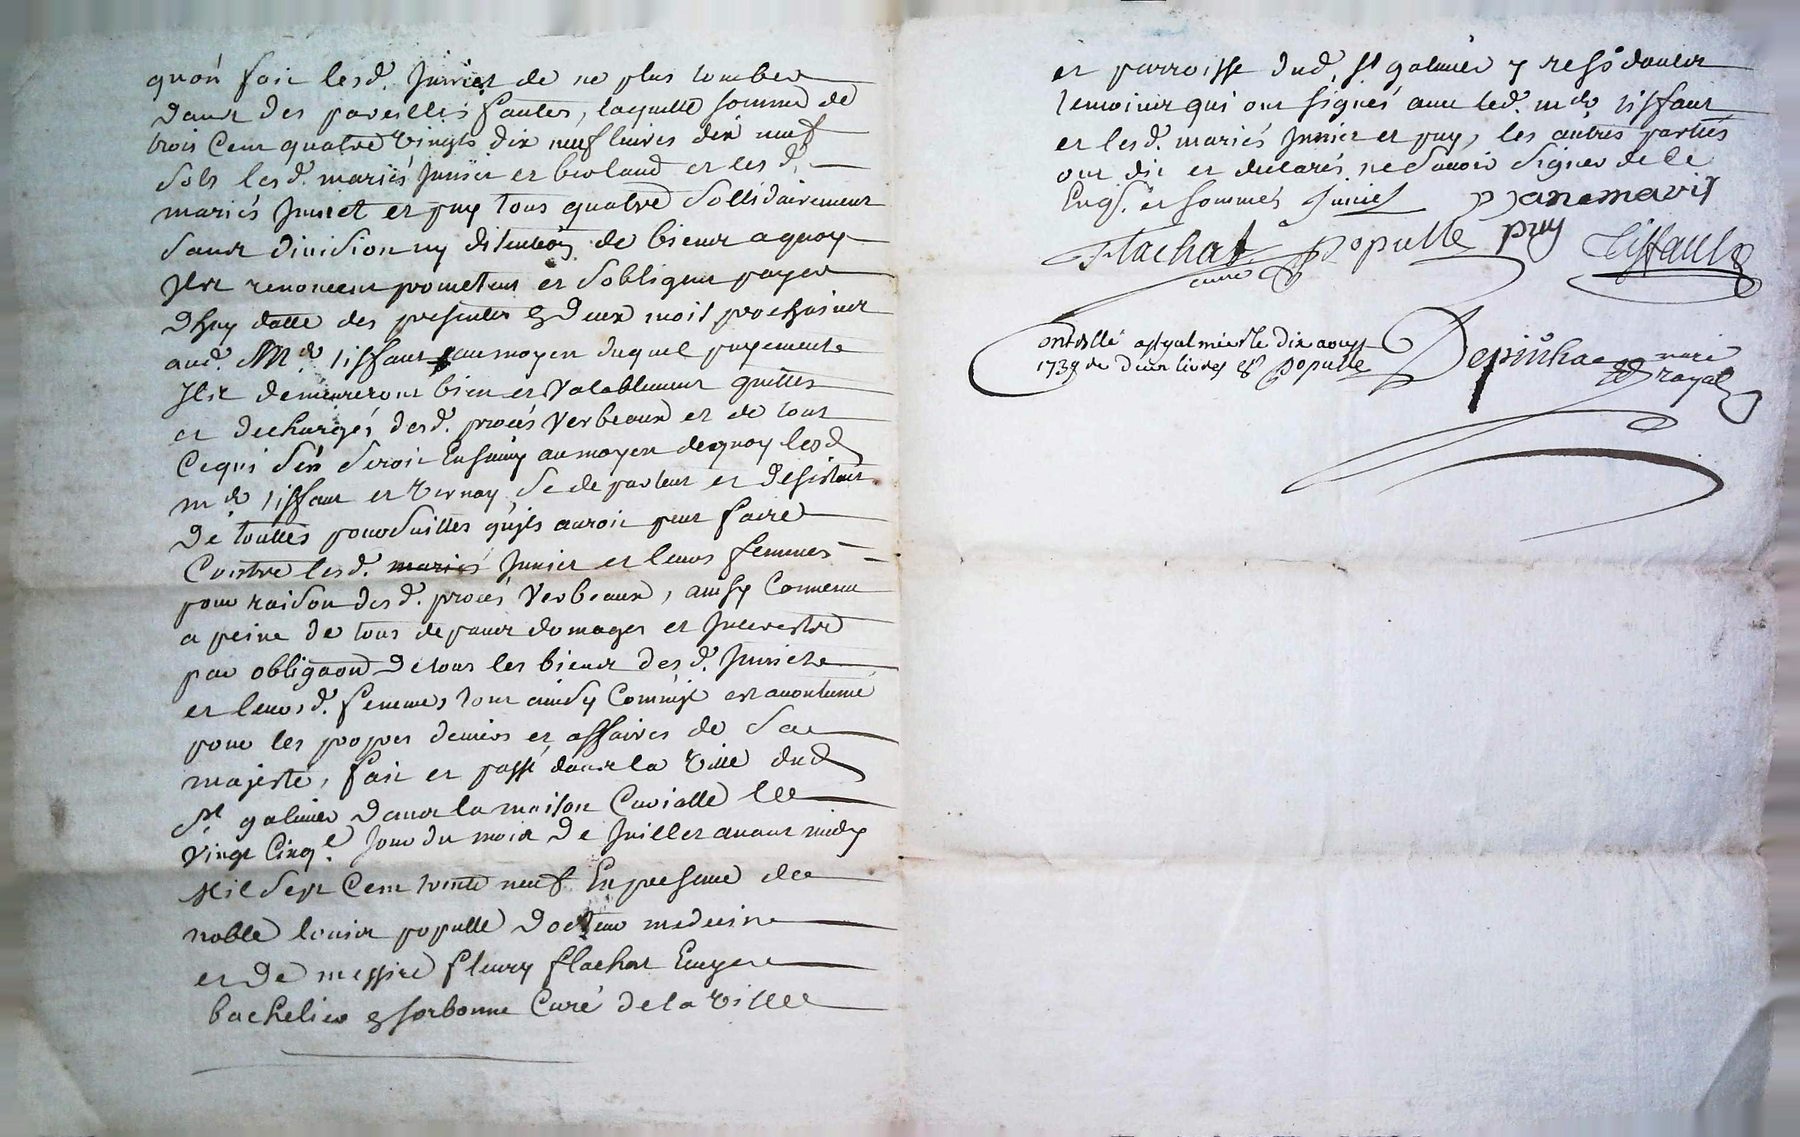 qu'on fait lesd. Juniet de ne plus tomber
dans des pareilles fautes, laquelle somme de
trois Cent quatre Vingts dix neuf livres dix neuf
sols lesd. mariés Juniet et berlaud et les d.
mariés Juniet et puy tous quatre Sollidairement
sans division ny discution de biens a quoy
Ils renoncent prometent et s'obligent payer
d'huy datte des presentes En Deux mois prochains
aud. Mr. tiffaut au moyen duquel payement
Ils demeureront bien et Valablement quittes
et dechargés desd. procés Verbeaux et de tout
Ce qui s'en seroit Ensuivy au moyen de quoy lesd
mrs tiffaut et Vernay se departent et desistent
De touttes poursuittes qu'ils auroit peut faire
Contre lesd. mariés Juniet et leurs femmes
pour raison desd. procés Verbeaux, ainsy Convenu
a peine de tous depans domages et Interestz
par obligaon De tous les biens desd. Juniet
et leurs d. femmes tout ainsy Comm'il est acoutumé
pour les propres deniers et affaires de Sa
majesté, fait et passé dans la Ville dud
St galmier Dans la maison Curialle le
Vingt Cinqe. Jour du mois De Juillet avant midy
Mil Sept Cent trente neuf En presence de
noble louis populle Docteur medecine
et De messire fleury flachat
bachelier En sorbonne Curé de la Ville
et parroisse dud. St galmier y residants
temoins qui ont signés avec led. mr tiffaut
et lesd. mariés Juniet et puy, les autres parties
ont dit et declarés ne savoir signer de ce
Enqs. et sommés Juniet
Flachat curé Populle puy Tiffault
Controllé a St galmier le dix aoust
1739 Re Deux livres 8s Populle
Depinhac nore royal